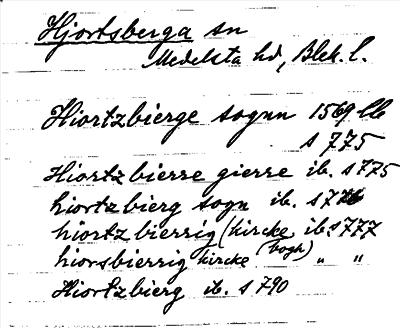 Hjortsberga sn
Medelsta hd, Blek. l.
Hiortzbierge sognn 1569 lb
s 775
Hiortzbierre gierre ib. s 775
hiortzbierg sogn ib. s 776
hiortzbierrig (kircke ib. s 777
hiorsbierrig kircke (bogh) " "
Hiortzbierg ib. s 790